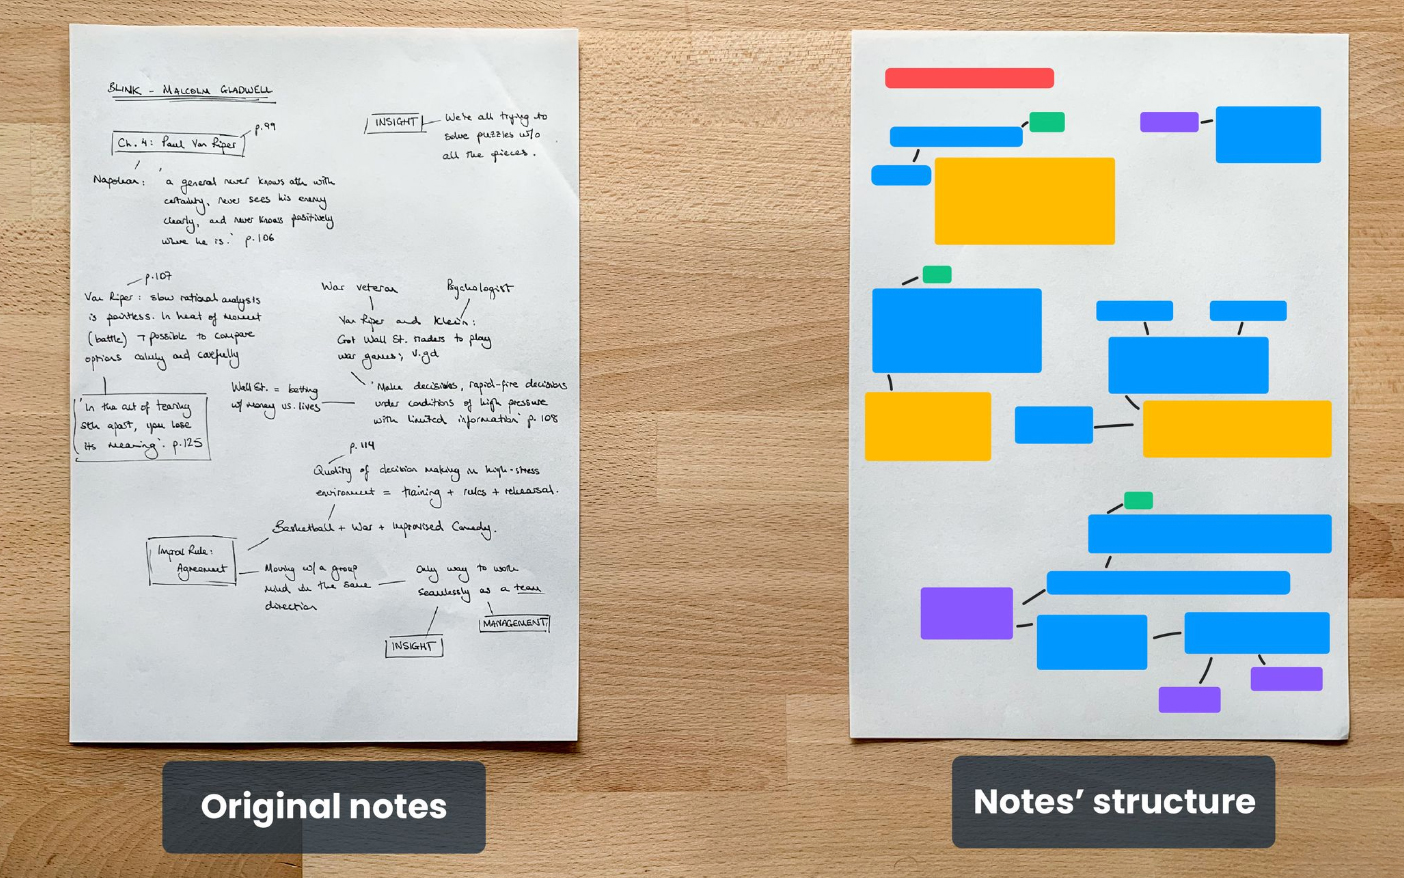 BLINK - MALCOLM GLADWELL
p.99
Ch. 4: Paul Van Riper
INSIGHT
We're all trying to
solve puzzles w/o
all the pieces.
Napolean:
'a general never knows with
certainty, never sees his enemy
clearly, and never knows positively
where he is.' p.106
p.107
Van Riper: slow rational analysis
is pointless. In heat of moment
(battle) possible to compare
options calmly and carefully
'In the act of tearing
sth apart, you lose
its meaning'. p.125
War veteran
Psychologist
Van Riper and Klein:
Got Wall St. traders to play
war games; v.gd
Wall St. = betting
w/ money vs. lives
'Make decisions, rapid-fire decisions
under conditions of high pressure
with limited information' p.108
p.114
Quality of decision making in high-stress
environment = training + rules + rehearsal.
Basketball + War + Improvised Comedy.
Improv Rule:
Agreement
Moving w/ a group
mind in the same
direction
Only way to work
seamlessly as a team
MANAGEMENT
INSIGHT
Original notes
Notes' structure